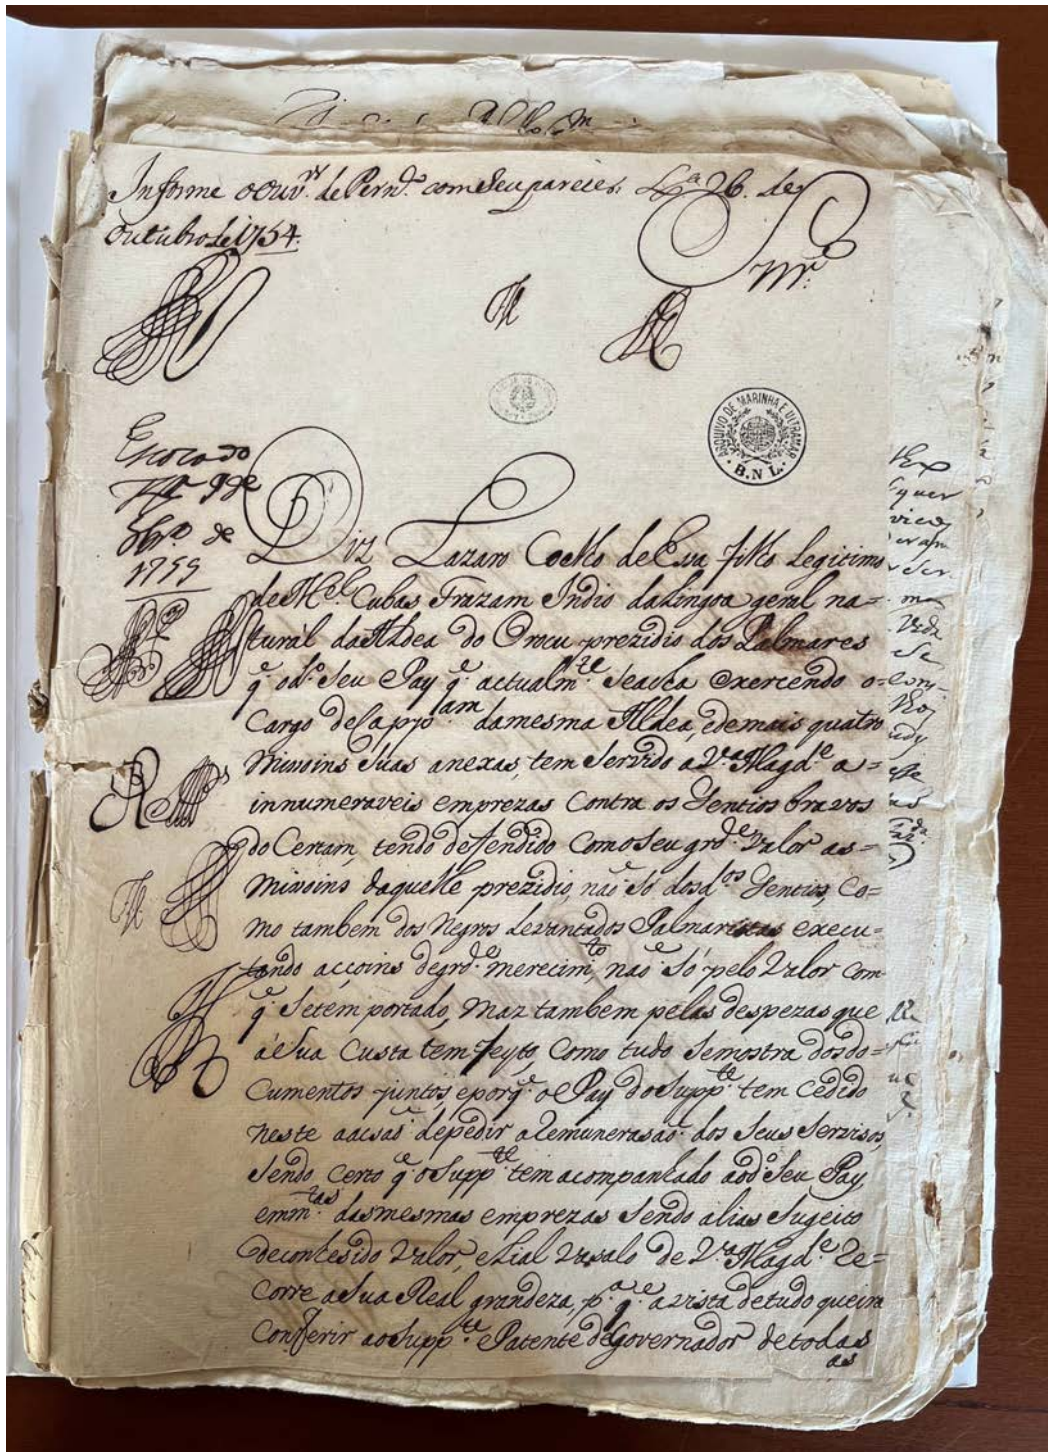 Informe o Ouv.or de Pern.co com seu parecer. Lx.a 26. de
Outubro de 1754.
Snr.
ARQUIVO DE MARINHA E ULTRAMAR
B.N.L.
Escocado
9 de
8br.o de
1755
Diz Lazaro Coelho de Eva filho legitimo
de M.el Cubas Frazam Indio da lingoa geral na=
tural da Aldea do Orocu prezidio dos Palmares
q.e o d.o Seu Pay q.e actualm.te Seacha exercendo o
Cargo de Cappitam da mesma Aldea, e demais quatro
Missoins Suas anexas, tem Servido a V.a Magd.e a=
innumeraveis emprezas Contra os Gentios bravos
do Certam, tendo defendido Como seu grd.e Valor as=
Missoins daquelle prezidio, naõ Só dos d.os Gentios, Co=
mo tambem dos Negros Levantados Palmaristas execu=
tando accoins de grd.e merecim.to, naõ Só pelo Valor Com
q.e Setem portado, Maz tambem pelas despezas que
á Sua Custa tem feyto, Como tudo Semostra dos do=
Cumentos juntos, e porq.e o Pay do Supp.te tem Cedido
neste a acsaõ depedir a Remunerasaõ dos Seus Servisos,
Sendo Certo q.e o Supp.te tem acompanhado ao d.o Seu Pay,
em m.tas das mesmas emprezas Sendo alias Sugeito
de conhesido Valor, e Lial Vasalo de V.a Magd.e Re=
Corre a Sua Real grandeza, p.a q.e a vista detudo queira
Conferir ao Supp.te a Patente de Governador de todas
as